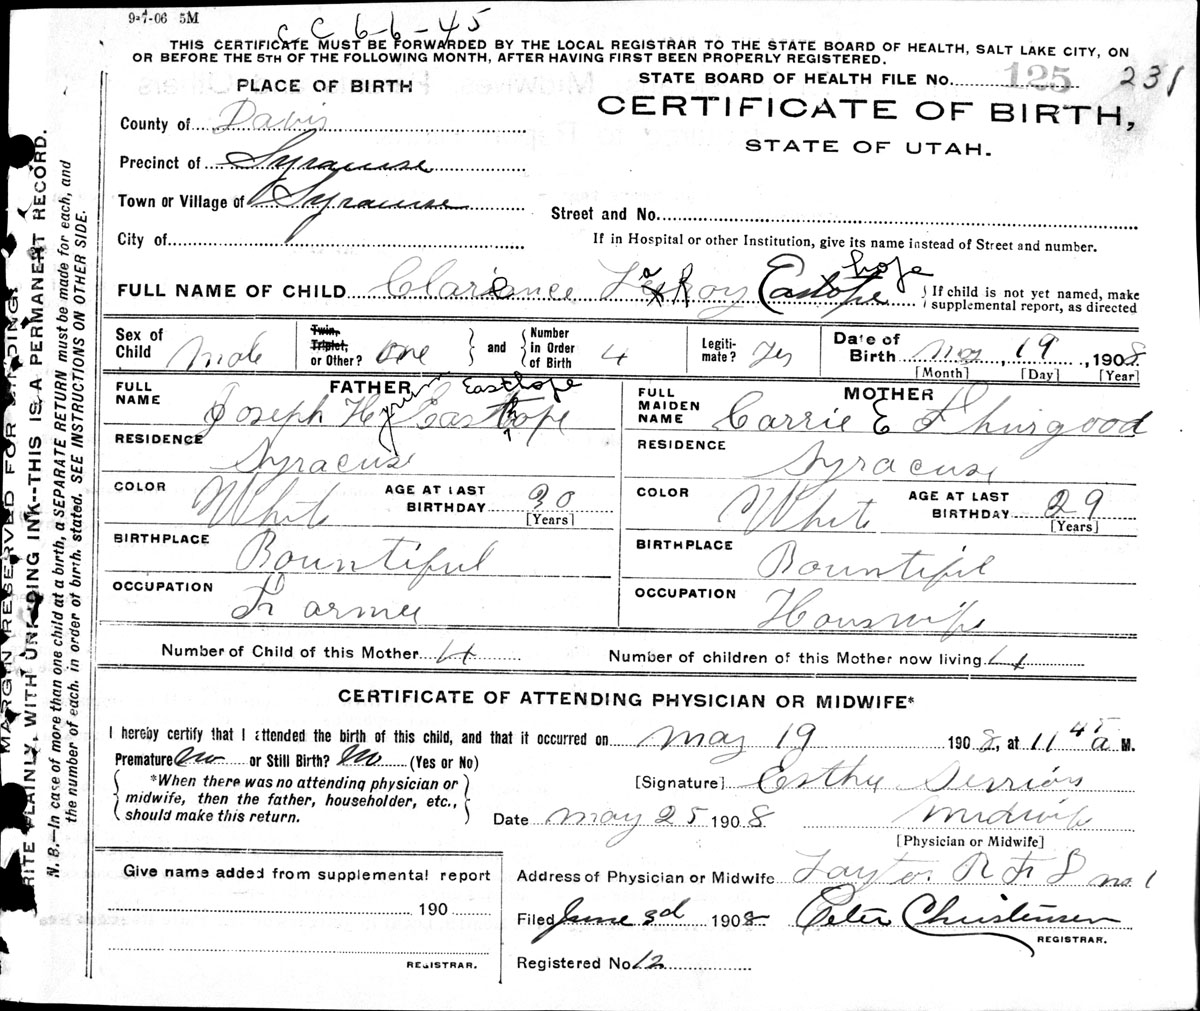 9-7-06 5M
C C 6-6-45
THIS CERTIFICATE MUST BE FORWARDED BY THE LOCAL REGISTRAR TO THE STATE BOARD OF HEALTH, SALT LAKE CITY, ON
OR BEFORE THE 5TH OF THE FOLLOWING MONTH, AFTER HAVING FIRST BEEN PROPERLY REGISTERED.
STATE BOARD OF HEALTH FILE No. 125 231
PLACE OF BIRTH
CERTIFICATE OF BIRTH,
STATE OF UTAH.
County of Davis
Precinct of Syracuse
Town or Village of Syracuse
Street and No.
City of
If in Hospital or other Institution, give its name instead of Street and number.
hope
FULL NAME OF CHILD Clarence LaRoy Eastope { If child is not yet named, make
supplemental report, as directed
Sex of Child Male Twin, Triplet, or Other? One and Number in Order of Birth 4 Legiti-mate? Yes Date of Birth May, 19, 1908
[Month] [Day] [Year]
FATHER Easthope
FULL NAME Joseph Hyrum Easthope
MOTHER
FULL MAIDEN NAME Carrie E Thurgood
RESIDENCE Syracuse
RESIDENCE Syracuse
COLOR White AGE AT LAST BIRTHDAY 30 [Years]
COLOR White AGE AT LAST BIRTHDAY 29 [Years]
BIRTHPLACE Bountiful
BIRTHPLACE Bountiful
OCCUPATION Farmer
OCCUPATION Houswife
Number of Child of this Mother 4 Number of children of this Mother now living 4
CERTIFICATE OF ATTENDING PHYSICIAN OR MIDWIFE*
I hereby certify that I attended the birth of this child, and that it occurred on May 19 1908, at 11 45 a M.
Premature No or Still Birth? No (Yes or No)
*When there was no attending physician or
midwife, then the father, householder, etc.,
should make this return.
[Signature] Esther
Date May 25 1908 Midwife
[Physician or Midwife]
Give name added from supplemental report
Address of Physician or Midwife Layton R F D no 1
190
Filed June 3d 1908 Peter Christensen
REGISTRAR.
REGISTRAR.
Registered No. 12
MARGIN RESERVED FOR BINDING.
WRITE PLAINLY, WITH UNFADING INK--THIS IS A PERMANENT RECORD.
N. B.—In case of more than one child at a birth, a SEPARATE RETURN must be made for each, and
the number of each, in order of birth, stated. SEE INSTRUCTIONS ON OTHER SIDE.